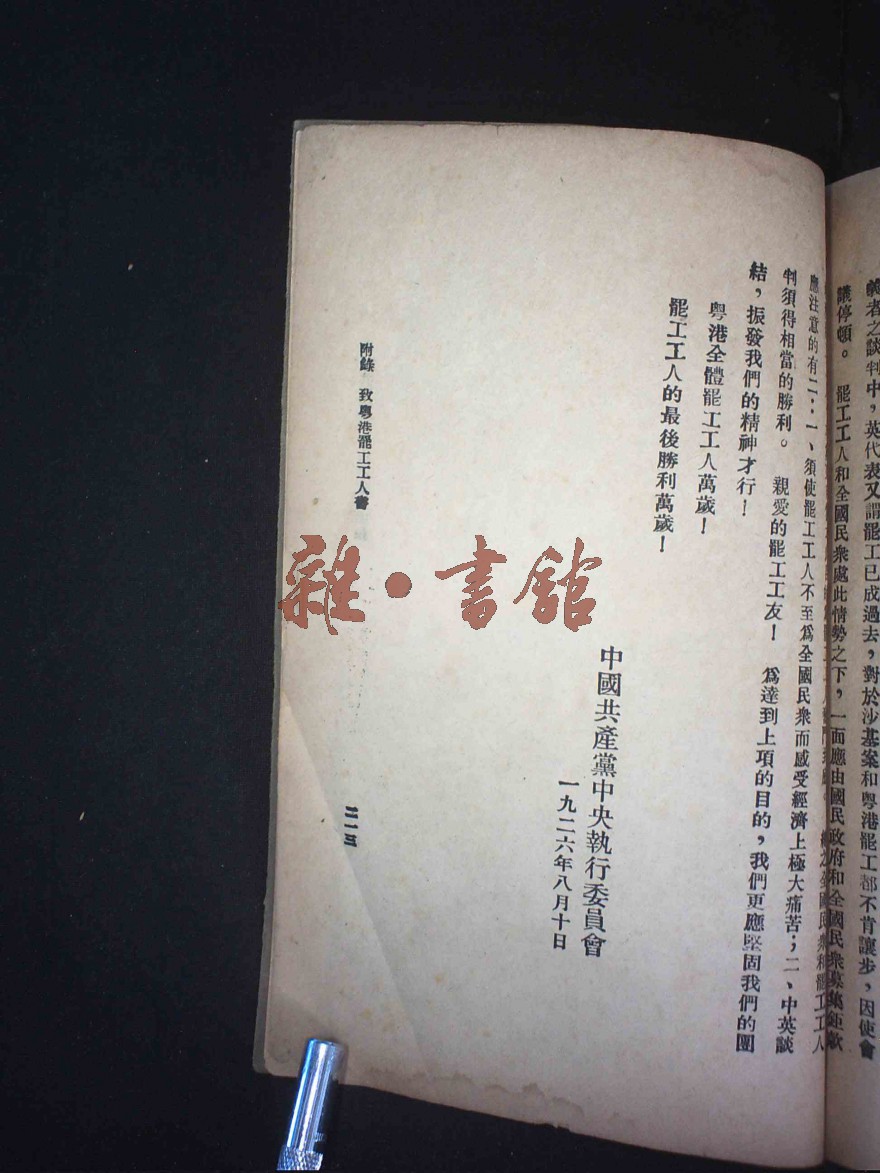 義者之談判中，英代表又謂罷工已成過去，對於沙基案和粤港罷工都不肯讓步，因使會
議停頓。　罷工工人和全國民衆處此情勢之下，一面應由國民政府和全國民衆募集鉅款
全國民衆和罷工工人
應注意的有二：一、須使罷工工人不至爲全國民衆而感受經濟上極大痛苦；二、中英談
判須得相當的勝利。　親愛的罷工工友！　爲達到上項的目的，我們更應堅固我們的團
結，振發我們的精神才行！
粤港全體罷工工人萬歲！
罷工工人的最後勝利萬歲！
中國共產黨中央執行委員會
一九二六年八月十日
附錄　致粤港罷工工人書
二一三
雜·書館